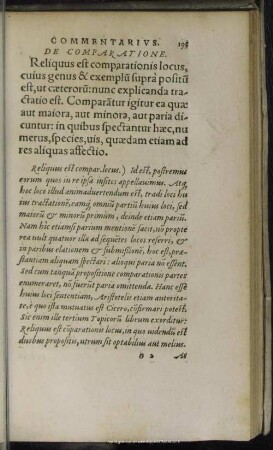 COMMENTARIVS. 195
DE COMPARATIONE.
Reliquus est comparationis locus,
cuius genus & exemplũ suprà positũ
est, ut cæterorũ: nunc explicanda tra-
ctatio est. Comparãtur igitur ea quæ
aut maiora, aut minora, aut paria di-
cuntur: in quibus spectantur hæc, nu
merus, species, uis, quædam etiam ad
res aliquas affectio.
Reliquus est compar. locus.) Id est, postremus
eorum quos in re ipsa insitos appellauimus. Atq;
hoc loco illud animaduertendum est, tradi loci hu
ius tractationẽ, eamq; omniũ partiũ huius loci, sed
maiorũ & minorũ primùm, deinde etiam pariũ.
Nam hic etiamsi parium mentionẽ facit, nõ propte
rea uult quatuor illa ad sequẽtes locos referri, &
in paribus elationem & submissionẽ, hoc est, præ-
stantiam aliquam spectari: alioqui paria nõ essent.
Sed cum tanquã propositione comparationis partes
enumeraret, nõ fuerũt paria omittenda. Hanc esse
huius loci sententiam, Aristotelis etiam autorita-
te, è quo ista mutuatus est Cicero, cõfirmari potest.
Sic enim ille tertium Topicorũ librum exorditur:
Reliquus est cõparationis locus, in quo uidendũ est
duobus propositis, utrum sit optabilius aut melius.